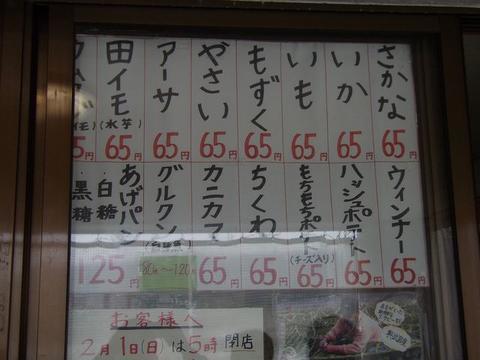 さかな
65円
いか
65円
いも
65円
もずく
65円
やさい
65円
アーサ
65円
田イモ
(水芋)
65円
5円
ウィンナー
65円
ハッシュポテト
65円
もちもちポテト
(チーズ入り)
65円
ちくわ
65円
カニカマ
65円
グルクン
80円〜120円
あげパン
白糖
黒糖
125円
お客様へ
2月1日(日)は5時閉店